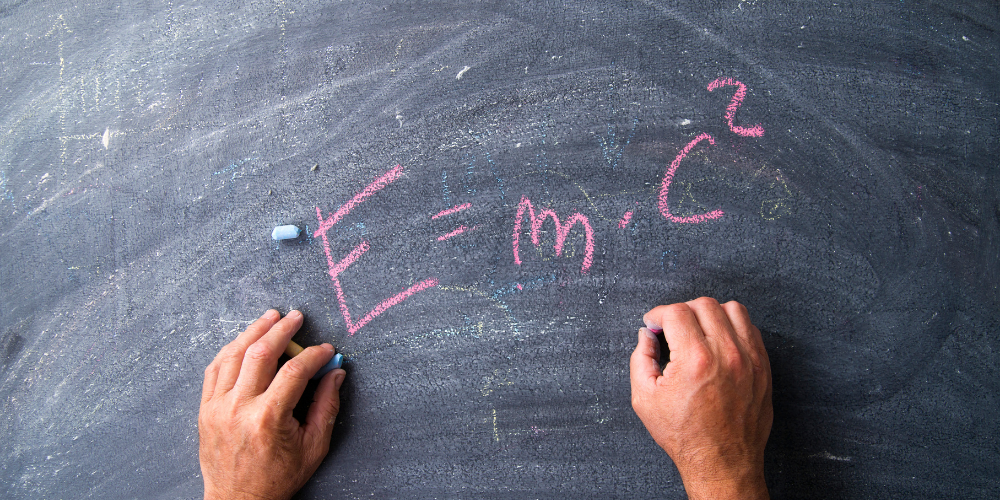 E = m · c²